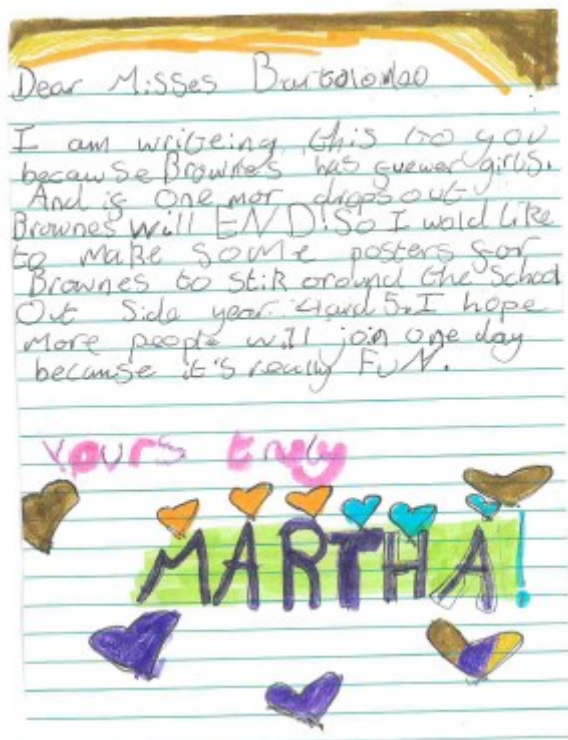 Dear Misses Bartolomao
I am writeing this to you
because Brownes has guewer girls.
And is one mor drops out
Brownes will END! So I wold Like
to make some posters for
Brownes to stik around the School
Out Side year 4 and 5. I hope
More people will join one day
because it's really FUN.
Yours truly
MARTHA!